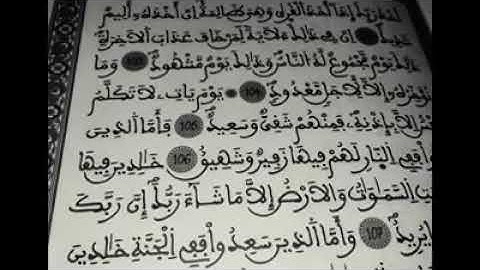 أَخْذُ رَبِّكَ إِذَا أَخَذَ ٱلْقُرَىٰ وَهِيَ ظَٰلِمَةٌ إِنَّ أَخْذَهُۥ أَلِيمٌ
شَدِيدٌ إِنَّ فِي ذَٰلِكَ لَأٓيَةً لِّمَنْ خَافَ عَذَابَ ٱلْأٓخِرَةِ
ذَٰلِكَ يَوْمٌ مَّجْمُوعٌ لَّهُ ٱلنَّاسُ وَذَٰلِكَ يَوْمٌ مَّشْهُودٌ 103 وَمَا
نُؤَخِّرُهُۥ إِلَّا لِأَجَلٍ مَّعْدُودٍ 104 يَوْمَ يَأْتِۦ لَا تَكَلَّمُ
نَفْسٌ إِلَّا بِإِذْنِهِۦ فَمِنْهُمْ شَقِيٌّ وَسَعِيدٌ 105 فَأَمَّا ٱلَّذِينَ
شَقُوا فَفِي ٱلنَّارِ لَهُمْ فِيهَا زَفِيرٌ وَشَهِيقٌ 106 خَٰلِدِينَ فِيهَا
دَامَتِ ٱلسَّمَٰوَٰتُ وَٱلْأَرْضُ إِلَّا مَا شَآءَ رَبُّكَ إِنَّ رَبَّكَ
يُرِيدُ 107 وَأَمَّا ٱلَّذِينَ سَعِدُوا فَفِي ٱلْجَنَّةِ خَٰلِدِينَ